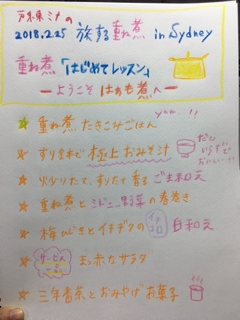 2018.2.25 旅する重ね煮 in Sydney
重ね煮「はじめてレッスン」
ーようこそ はぁも煮へー
重ね煮 たきこみごはん
すりまわで 極上おみそ汁
だし いらずで おいしい!!
炒りたて、すりたて 香る ごま和え
重ね煮と シドニー野菜の春巻き
梅びしおとイチヂクの イチコロ 白和え
サービスメニュー 真っ赤なサラダ
三年番茶とおみやげお菓子